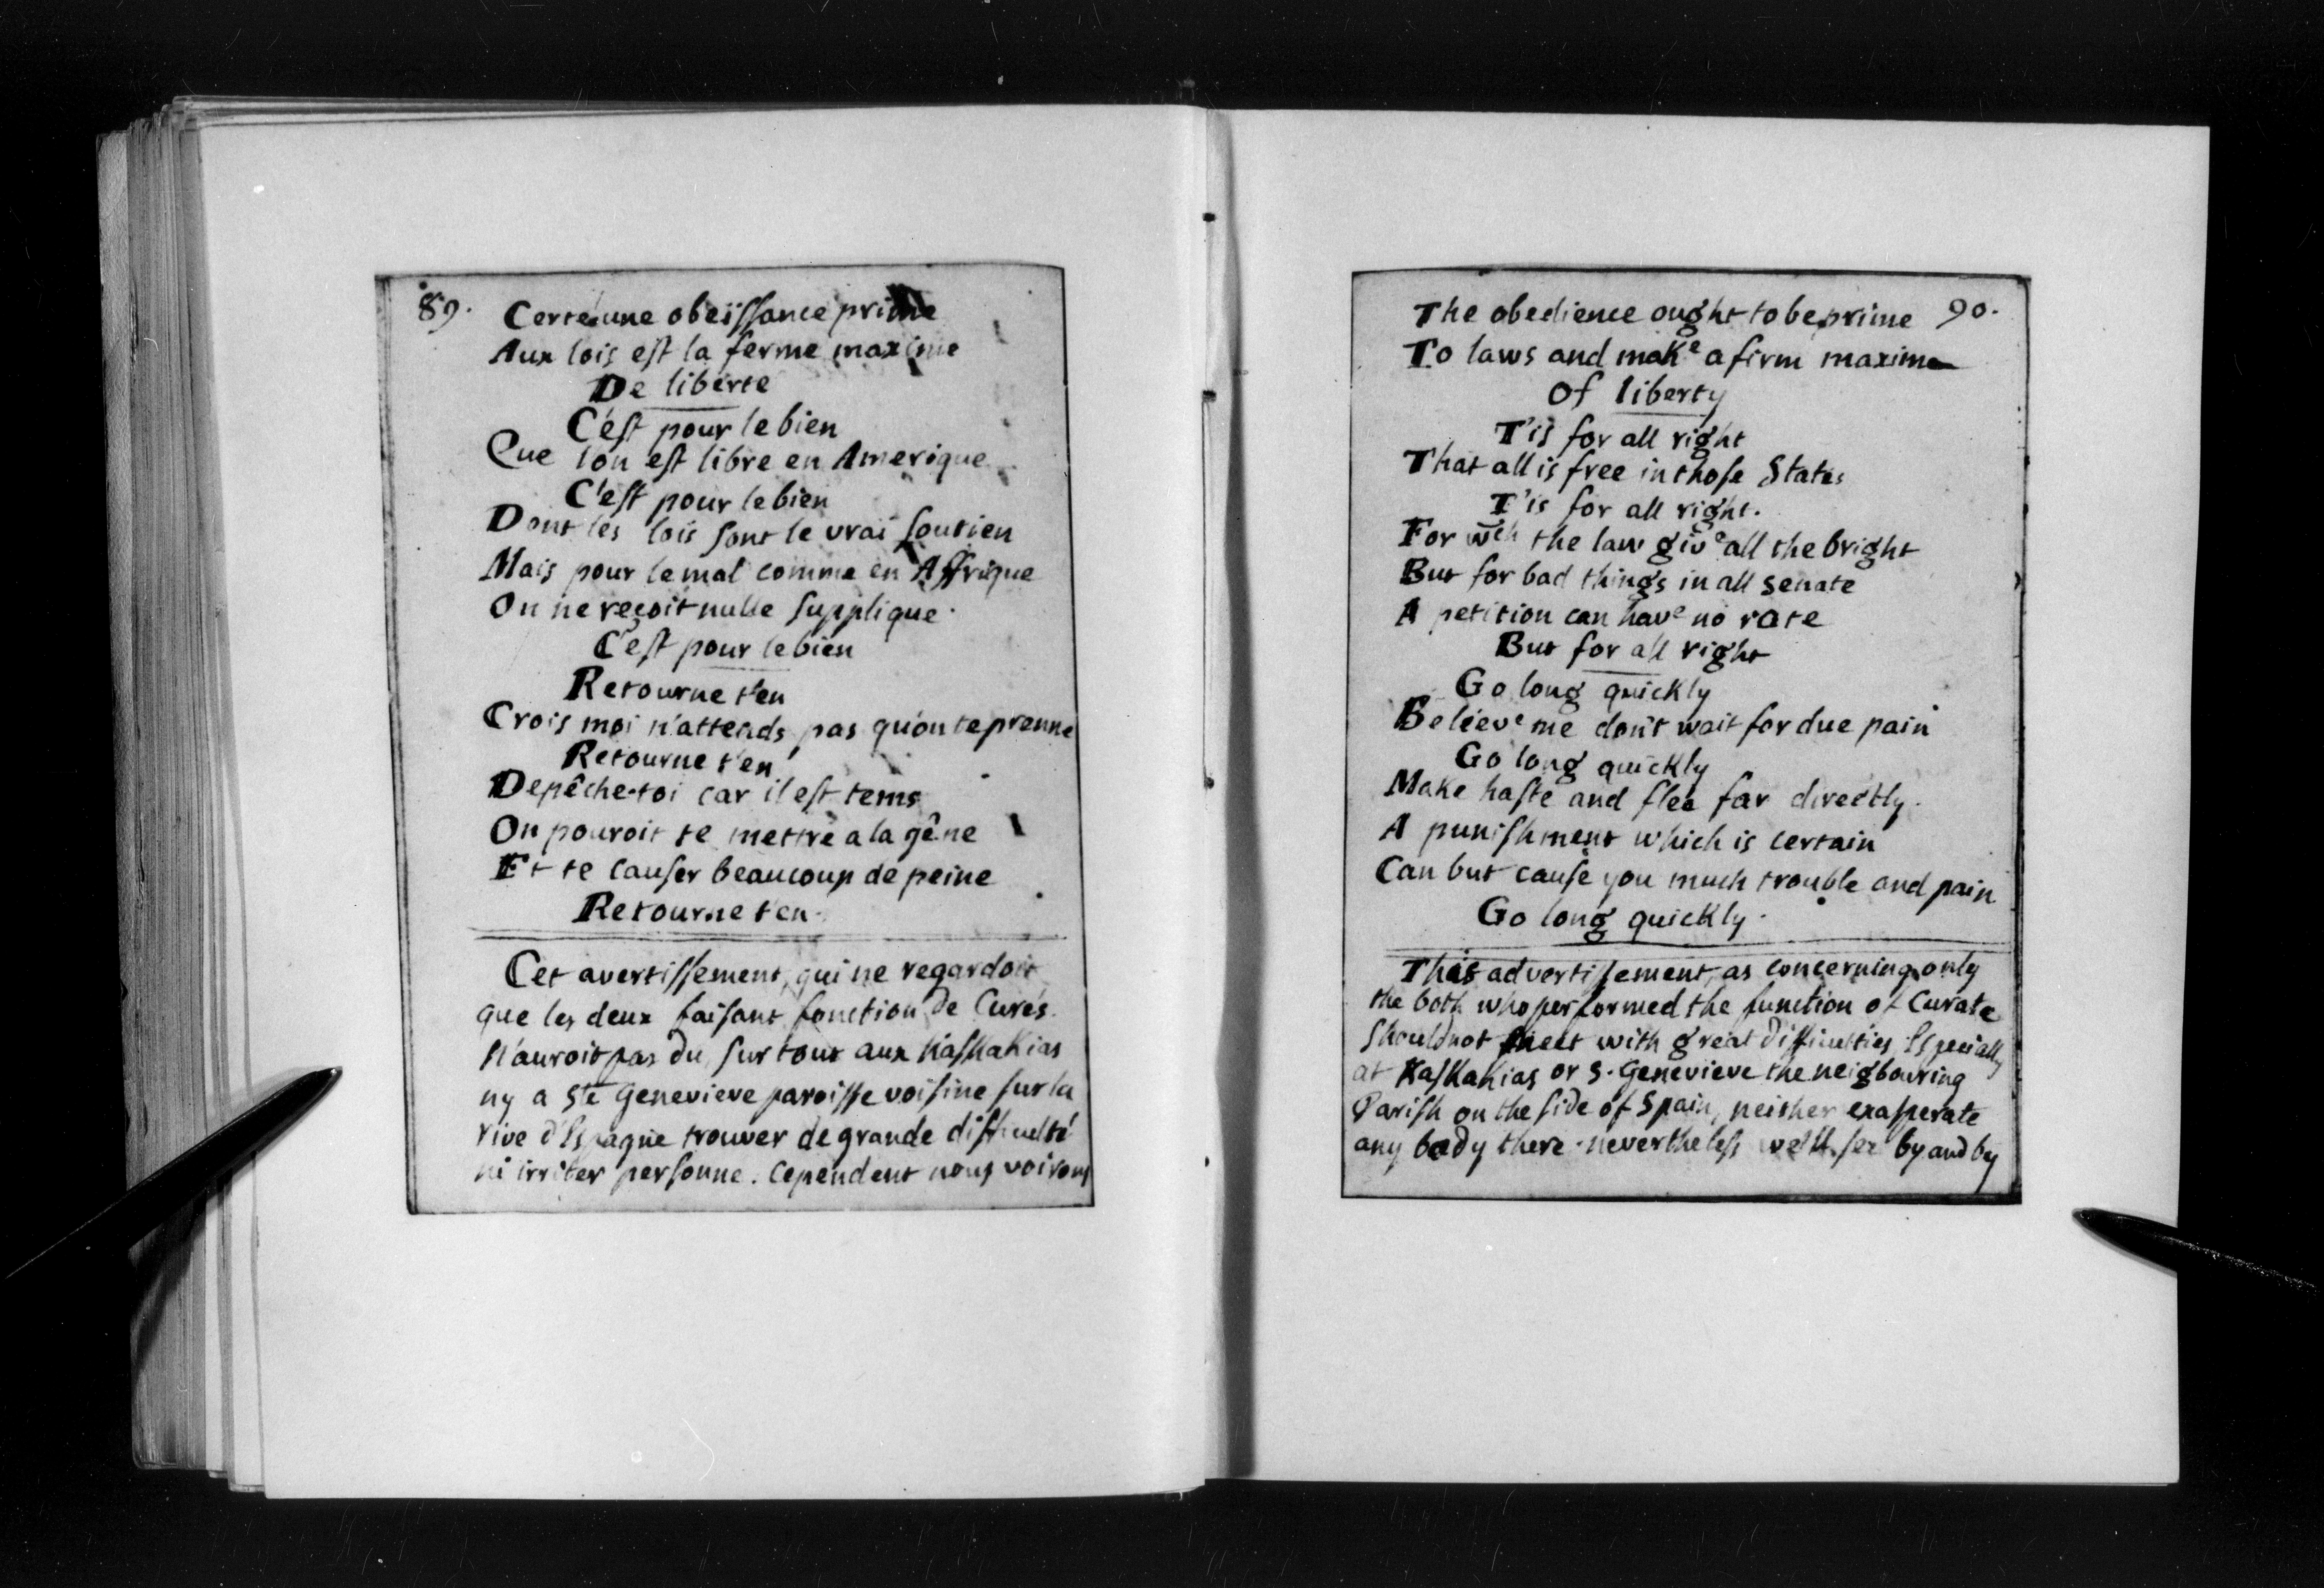 89.
Certe une obeissance prime
Aux lois est la ferme maxime
De liberte
C'est pour le bien
Que lon est libre en Amerique
C'est pour le bien
Dont les lois sont le vrai soutien
Mais pour le mal comme en Affrique
On ne reçoit nulle supplique.
C'est pour le bien
Retourne t'en
Crois moi n'attends pas qu'on te prenne
Retourne t'en
Depêche-toi car il est tems
On pouroit te mettre a la gêne
Et te causer beaucoup de peine
Retourne t'en.
Cet avertissement, qui ne regardoit
que les deux faisant fonction de Curés.
N'auroit pas du, sur tout aux Kaskakias
ny a Ste Genevieve paroisse voisine sur la
rive d'Espagne trouver de grande difficulté
ni irriter personne. Cependent nous voirons
90.
The obedience ought to be prime
To laws and make a firm maxime
Of liberty
T'is for all right
That all is free in those States
T'is for all right.
For wch the law give all the bright
But for bad things in all senate
A petition can have no rate
But for all right
Go long quickly
Beleeve me don't wait for due pain
Go long quickly
Make haste and flee far directly.
A punishment which is certain
Can but cause you much trouble and pain
Go long quickly.
This advertissement, as concerning only
the both who performed the function of Curate
should not meet with great difficulties Especially
at Kaskakias or S. Genevieve the neigbouring
Parish on the side of Spain, neither exasperate
any body there. nevertheless we'll see by and by